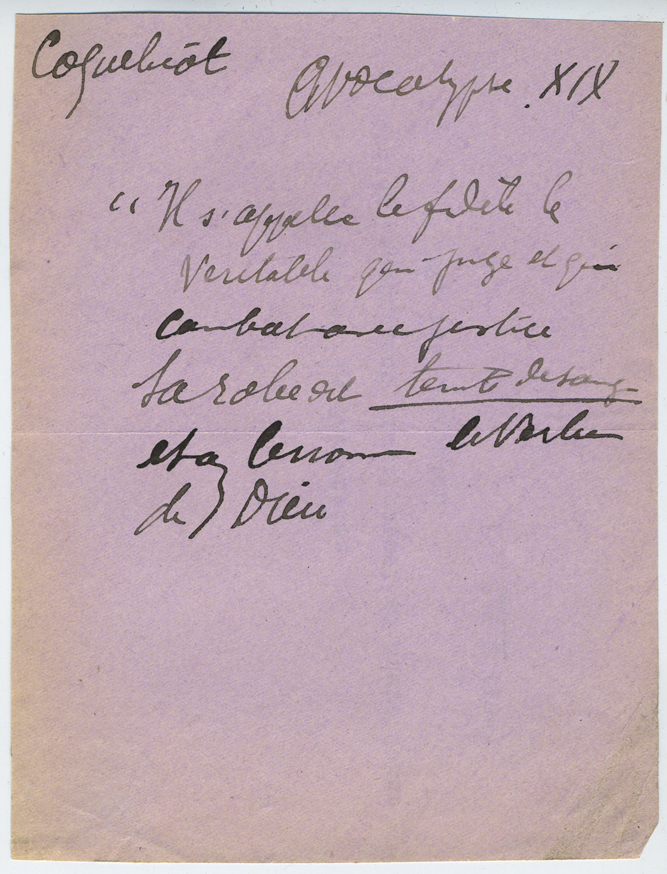 Coquebiot Apocalypse. XIX
" Il s'appelle le fidèle le
veritable qui juge et qui
combat avec justice
Sa robe est teinte de sang
et a le nom le Verbe
de Dieu